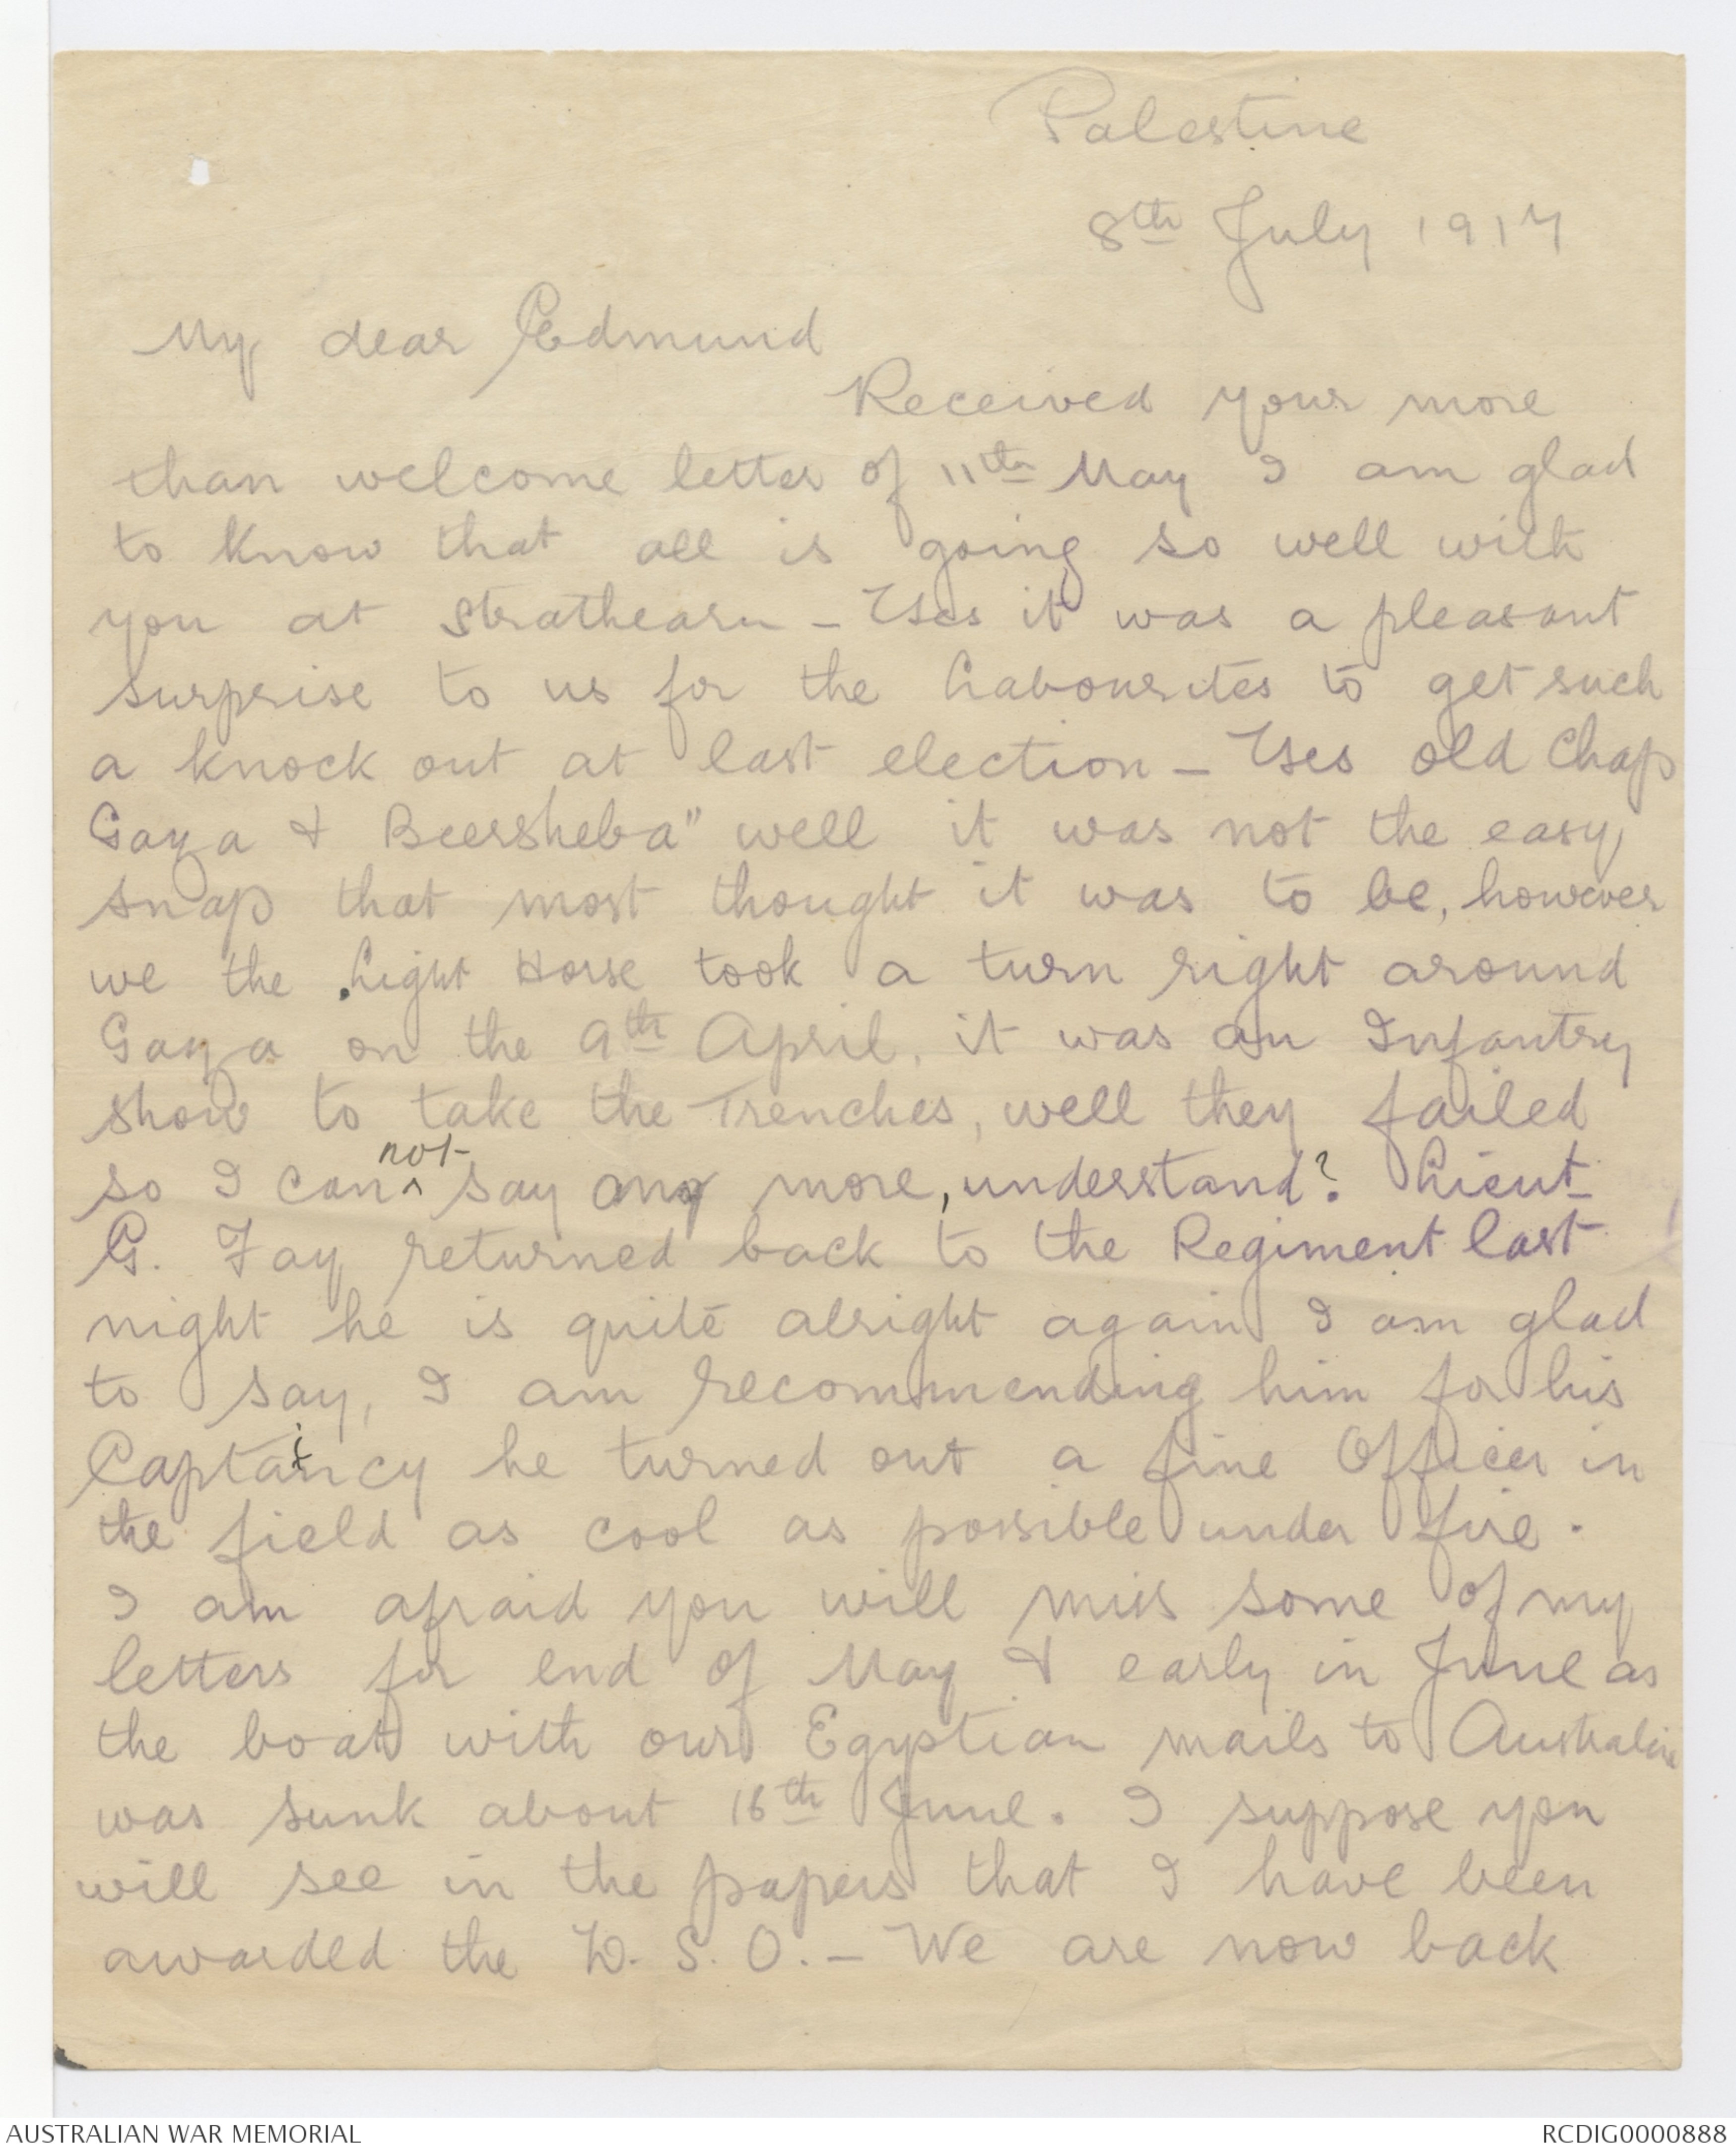 Palestine
8th July 1917
My dear Edmund
Received your more
than welcome letter of 11th May I am glad
to know that all is going so well with
you at Strathearn - Yes it was a pleasant
surprise to us for the Labourites to get such
a knock out at last election - Yes old Chap
Gaza & Beersheba" well it was not the easy
snap that most thought it was to be, however
we the Light Horse took a turn right around
Gaza on the 9th April, it was an Infantry
show to take the Trenches, well they failed
so I can not say any more, understand? Lieut
G. Fay returned back to the Regiment last
night he is quite alright again I am glad
to say, I am recommending him for his
Captaincy he turned out a fine Officer in
the field as cool as possible under fire.
I am afraid you will miss some of my
letters for end of May & early in June as
the boat with our Egyptian mails to Australia
was sunk about 16th June. I suppose you
will see in the papers that I have been
awarded the D.S.O. - We are now back
AUSTRALIAN WAR MEMORIAL
RCDIG0000888